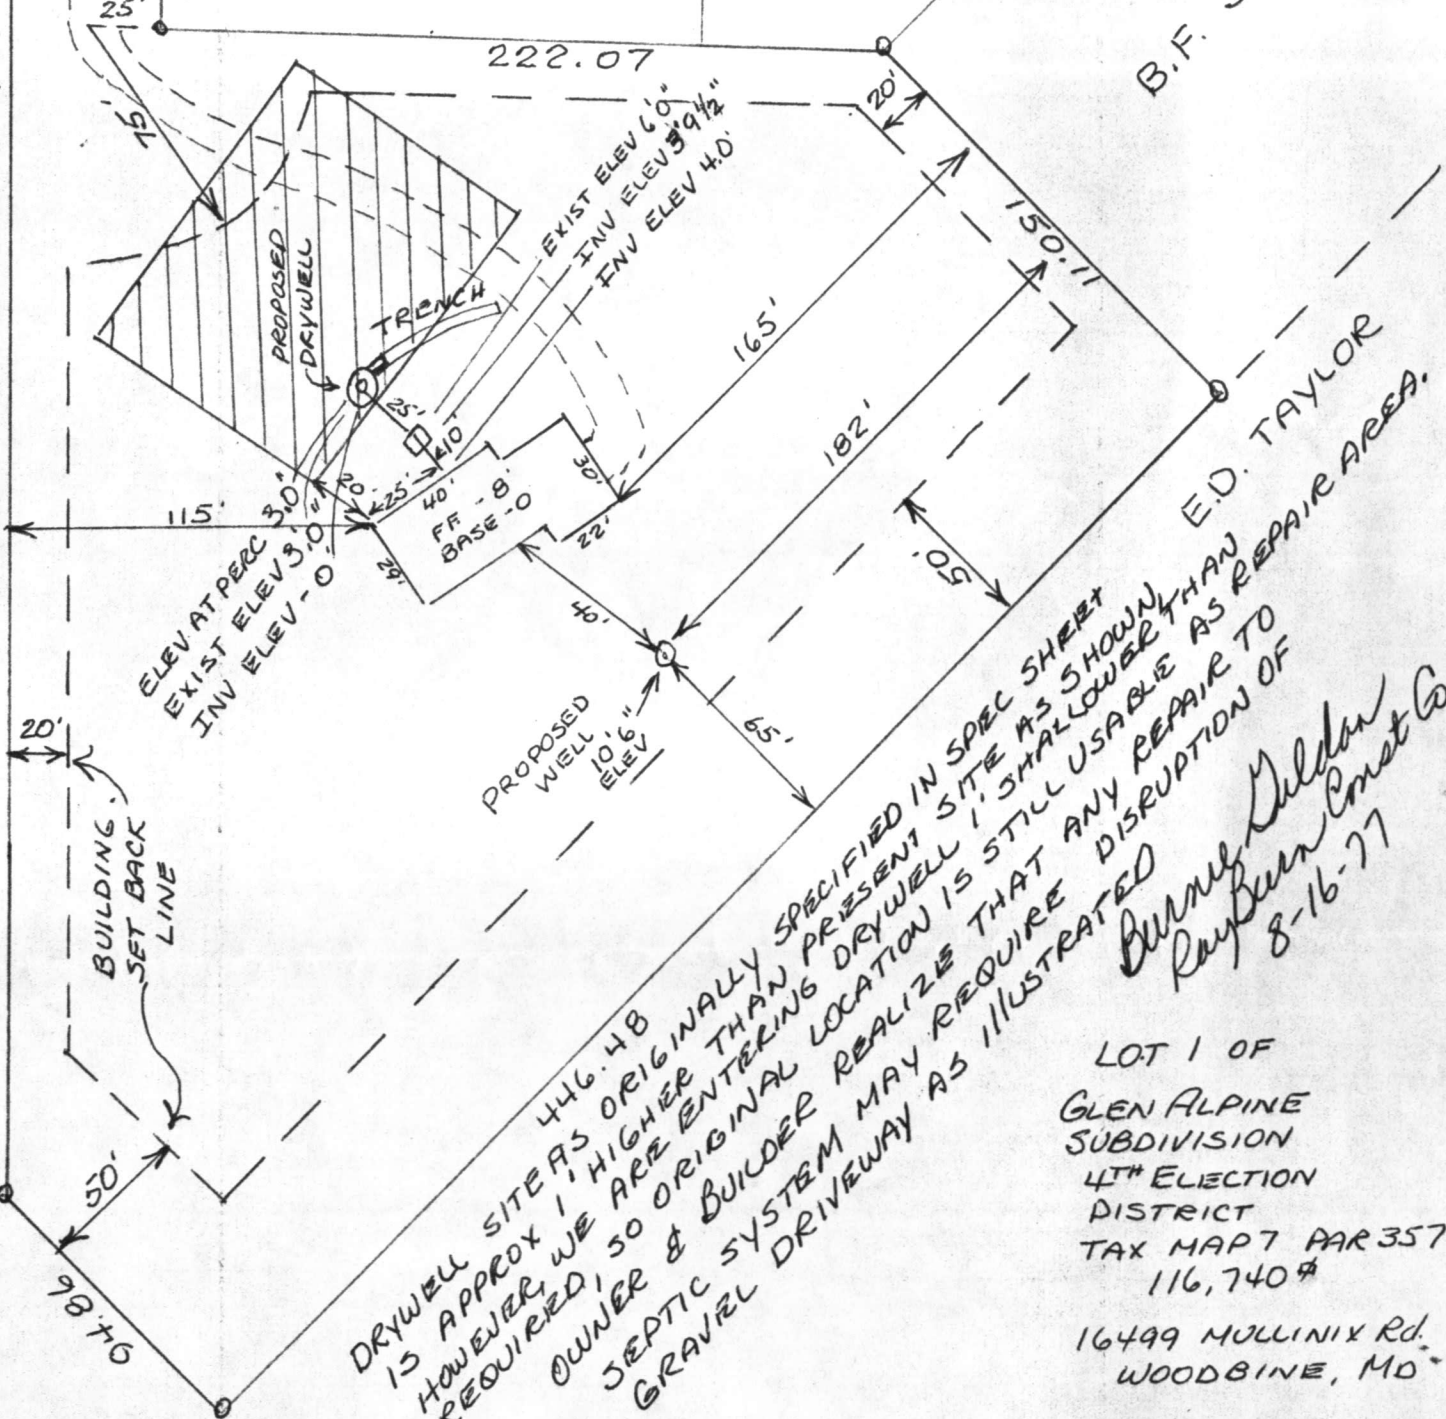 25'
222.07
B.F.
20'
75'
EXIST ELEV 6'0"
INV ELEV 3'9 1/2"
INV ELEV 4.0'
150.11
PROPOSED
DRYWELL
TRENCH
165'
182'
E.D. TAYLOR
25'
10'
20'
25'
40'
30'
FF - 8'
BASE - 0
22'
29'
115'
50'
40'
ELEV AT PERC 3.0"
EXIST ELEV 3.0"
INV ELEV - 0'
PROPOSED
WELL
10'6"
ELEV
65'
20'
BUILDING
SET BACK
LINE
446.48
50'
94.86
DRYWELL SITE AS ORIGINALLY SPECIFIED IN SPEC SHEET
IS APPROX 1' HIGHER THAN PRESENT SITE AS SHOWN,
HOWEVER, WE ARE ENTERING DRYWELL 1' SHALLOWER THAN
REQUIRED, SO ORIGINAL LOCATION IS STILL USABLE AS REPAIR AREA.
OWNER & BUILDER REALIZE THAT ANY REPAIR TO
SEPTIC SYSTEM MAY REQUIRE DISRUPTION OF
GRAVEL DRIVEWAY AS ILLUSTRATED
Const Co
8-16-77
LOT 1 OF
GLEN ALPINE
SUBDIVISION
4TH ELECTION
DISTRICT
TAX MAP 7 PAR 357
116,740
16499 MULLINIX Rd.
WOODBINE, MD